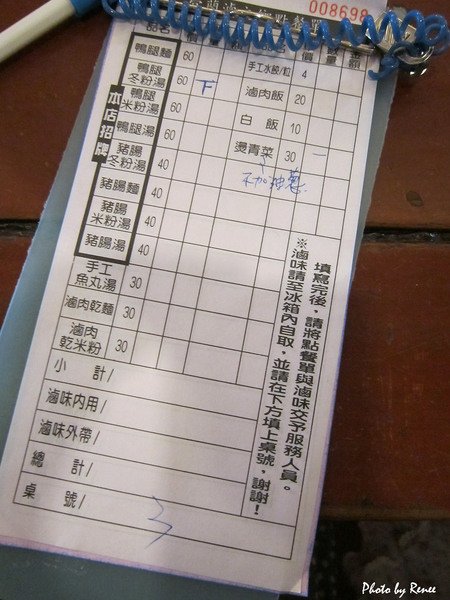 008698
品名
鴨腿麵 60
鴨腿冬粉湯 60
鴨腿米粉湯 60 下
鴨腿湯 60
豬腸冬粉湯 40
豬腸麵 40
豬腸米粉湯 40
豬腸湯 40
手工魚丸湯 30
滷肉乾麵 30
滷肉乾米粉 30
本店招牌
手工水餃/粒 4
滷肉飯 20
白飯 10
燙青菜 30 一
不加油蔥
小計/
滷味內用/
滷味外帶/
總計/
桌號/ 3
填寫完後，請將點餐單與滷味交予服務人員。
※滷味請至冰箱內自取，並請在下方填上桌號，謝謝！
Photo by Renee